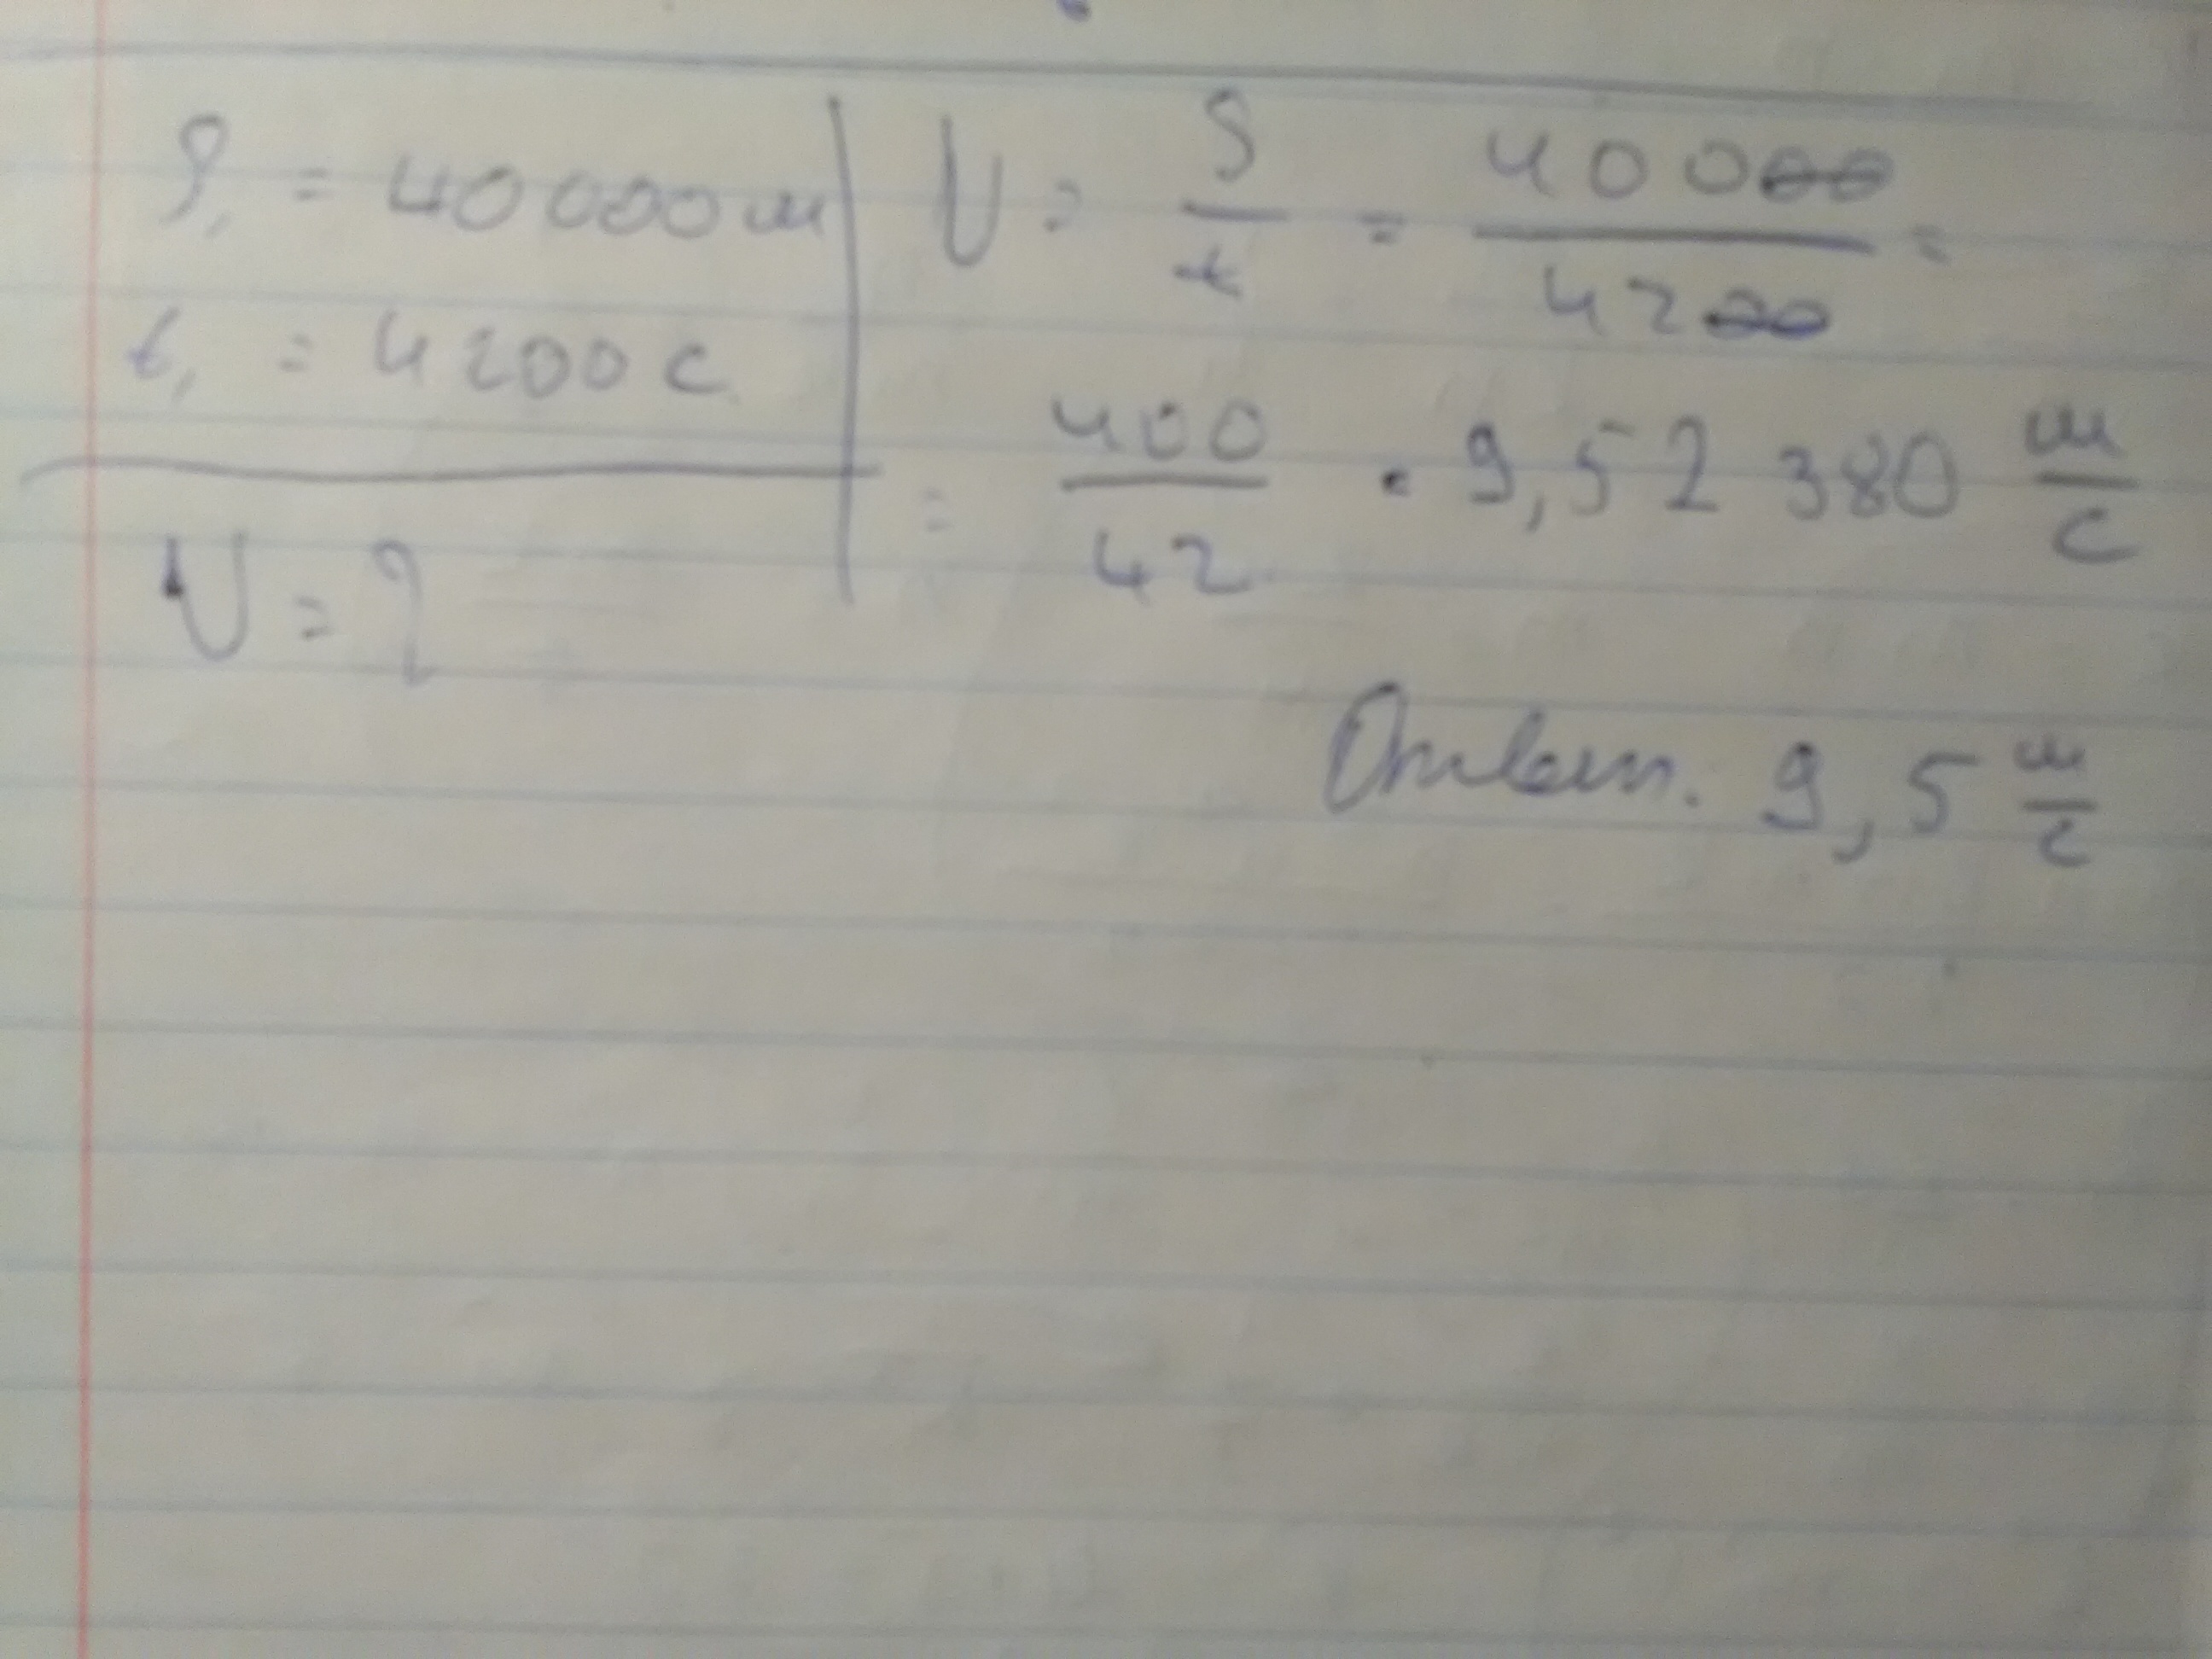 S₁ = 40000м
t₁ = 4200 с
V = ?
V = S/t = 40000/4200 =
= 400/42 = 9,52380 м/с
Ответ. 9,5 м/с